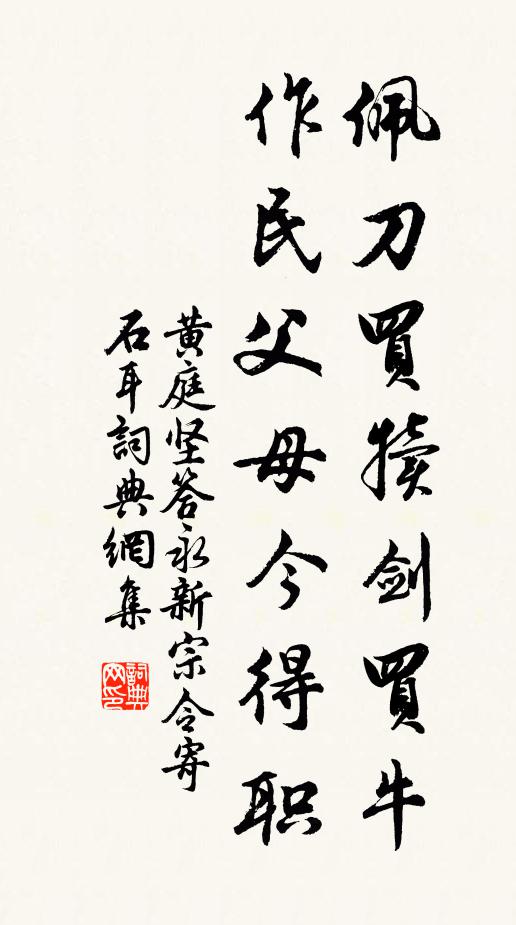 佩刀買犢劍買牛
作民父母今得职
黄庭坚答永新宗令寄
石耳詞典網集
詞典
网印